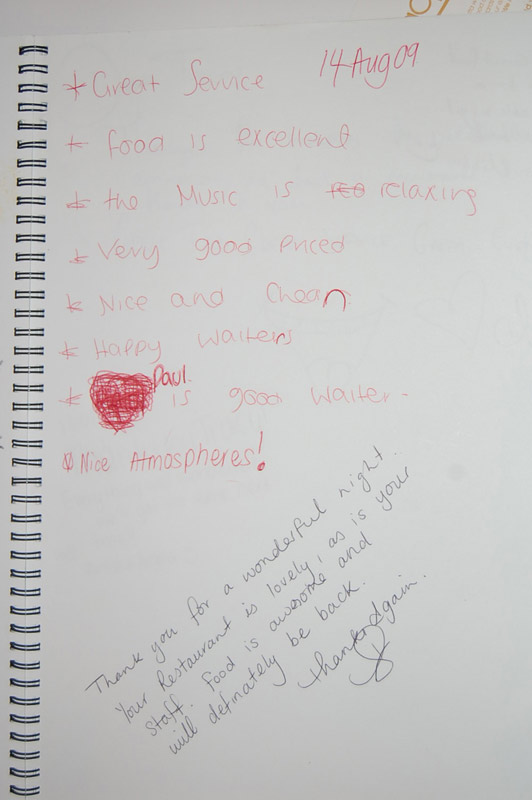 14 Aug 09
* Great Service
* food is excellent
* the Music is relaxing
* Very good Priced
* Nice and Clean
* Happy Waiters
* Paul. is good Waiter-
* Nice Atmospheres!
Thank you for a wonderful night.
Your Restaurant is lovely, as is your
staff. Food is awesome and
will definately be back.
thanks Again.